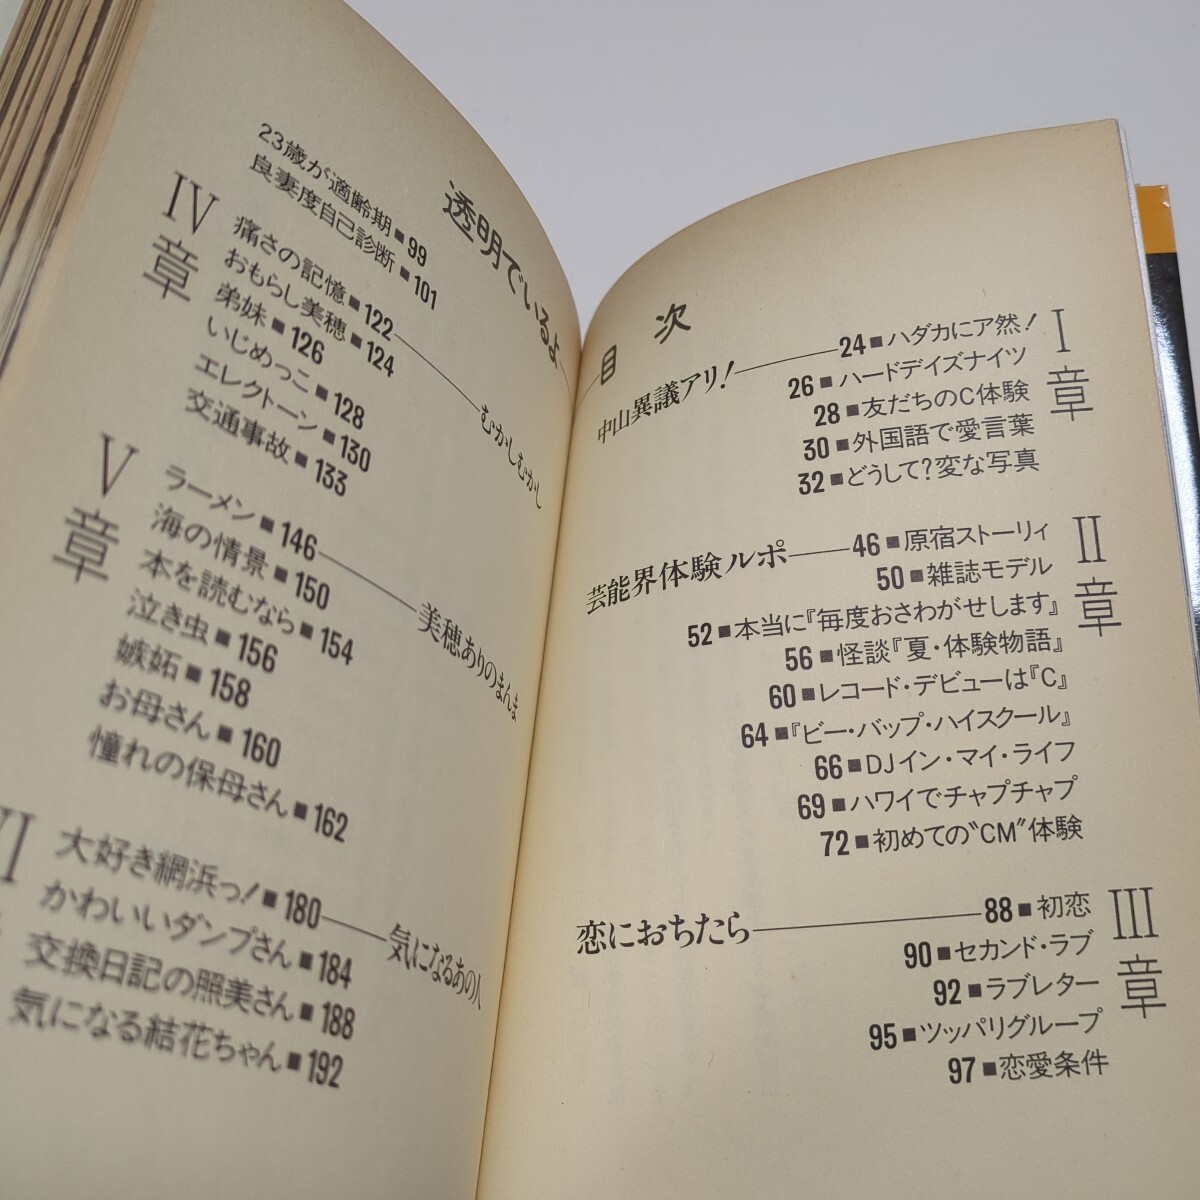 透明でいるよ
目次
I章
中山異議アリ!
24■ハダカにア然!
26■ハードデイズナイツ
28■友だちのC体験
30■外国語で愛言葉
32■どうして?変な写真
II章
芸能界体験ルポ
46■原宿ストーリィ
50■雑誌モデル
52■本当に『毎度おさわがせします』
56■怪談『夏・体験物語』
60■レコード・デビューは『C』
64■『ビー・バップ・ハイスクール』
66■DJイン・マイ・ライフ
69■ハワイでチャプチャプ
72■初めての“CM”体験
III章
恋におちたら
88■初恋
90■セカンド・ラブ
92■ラブレター
95■ツッパリグループ
97■恋愛条件
23歳が適齢期■99
良妻度自己診断■101
IV章
むかしむかし
痛さの記憶■122
おもらし美穂■124
弟妹■126
いじめっこ■128
エレクトーン■130
交通事故■133
V章
美穂ありのまんま
ラーメン■146
海の情景■150
本を読むなら■154
泣き虫■156
嫉妬■158
お母さん■160
憧れの保母さん■162
VI
気になるあの人
大好き網浜っ!■180
かわいいダンプさん■184
交換日記の照美さん■188
気になる結花ちゃん■192